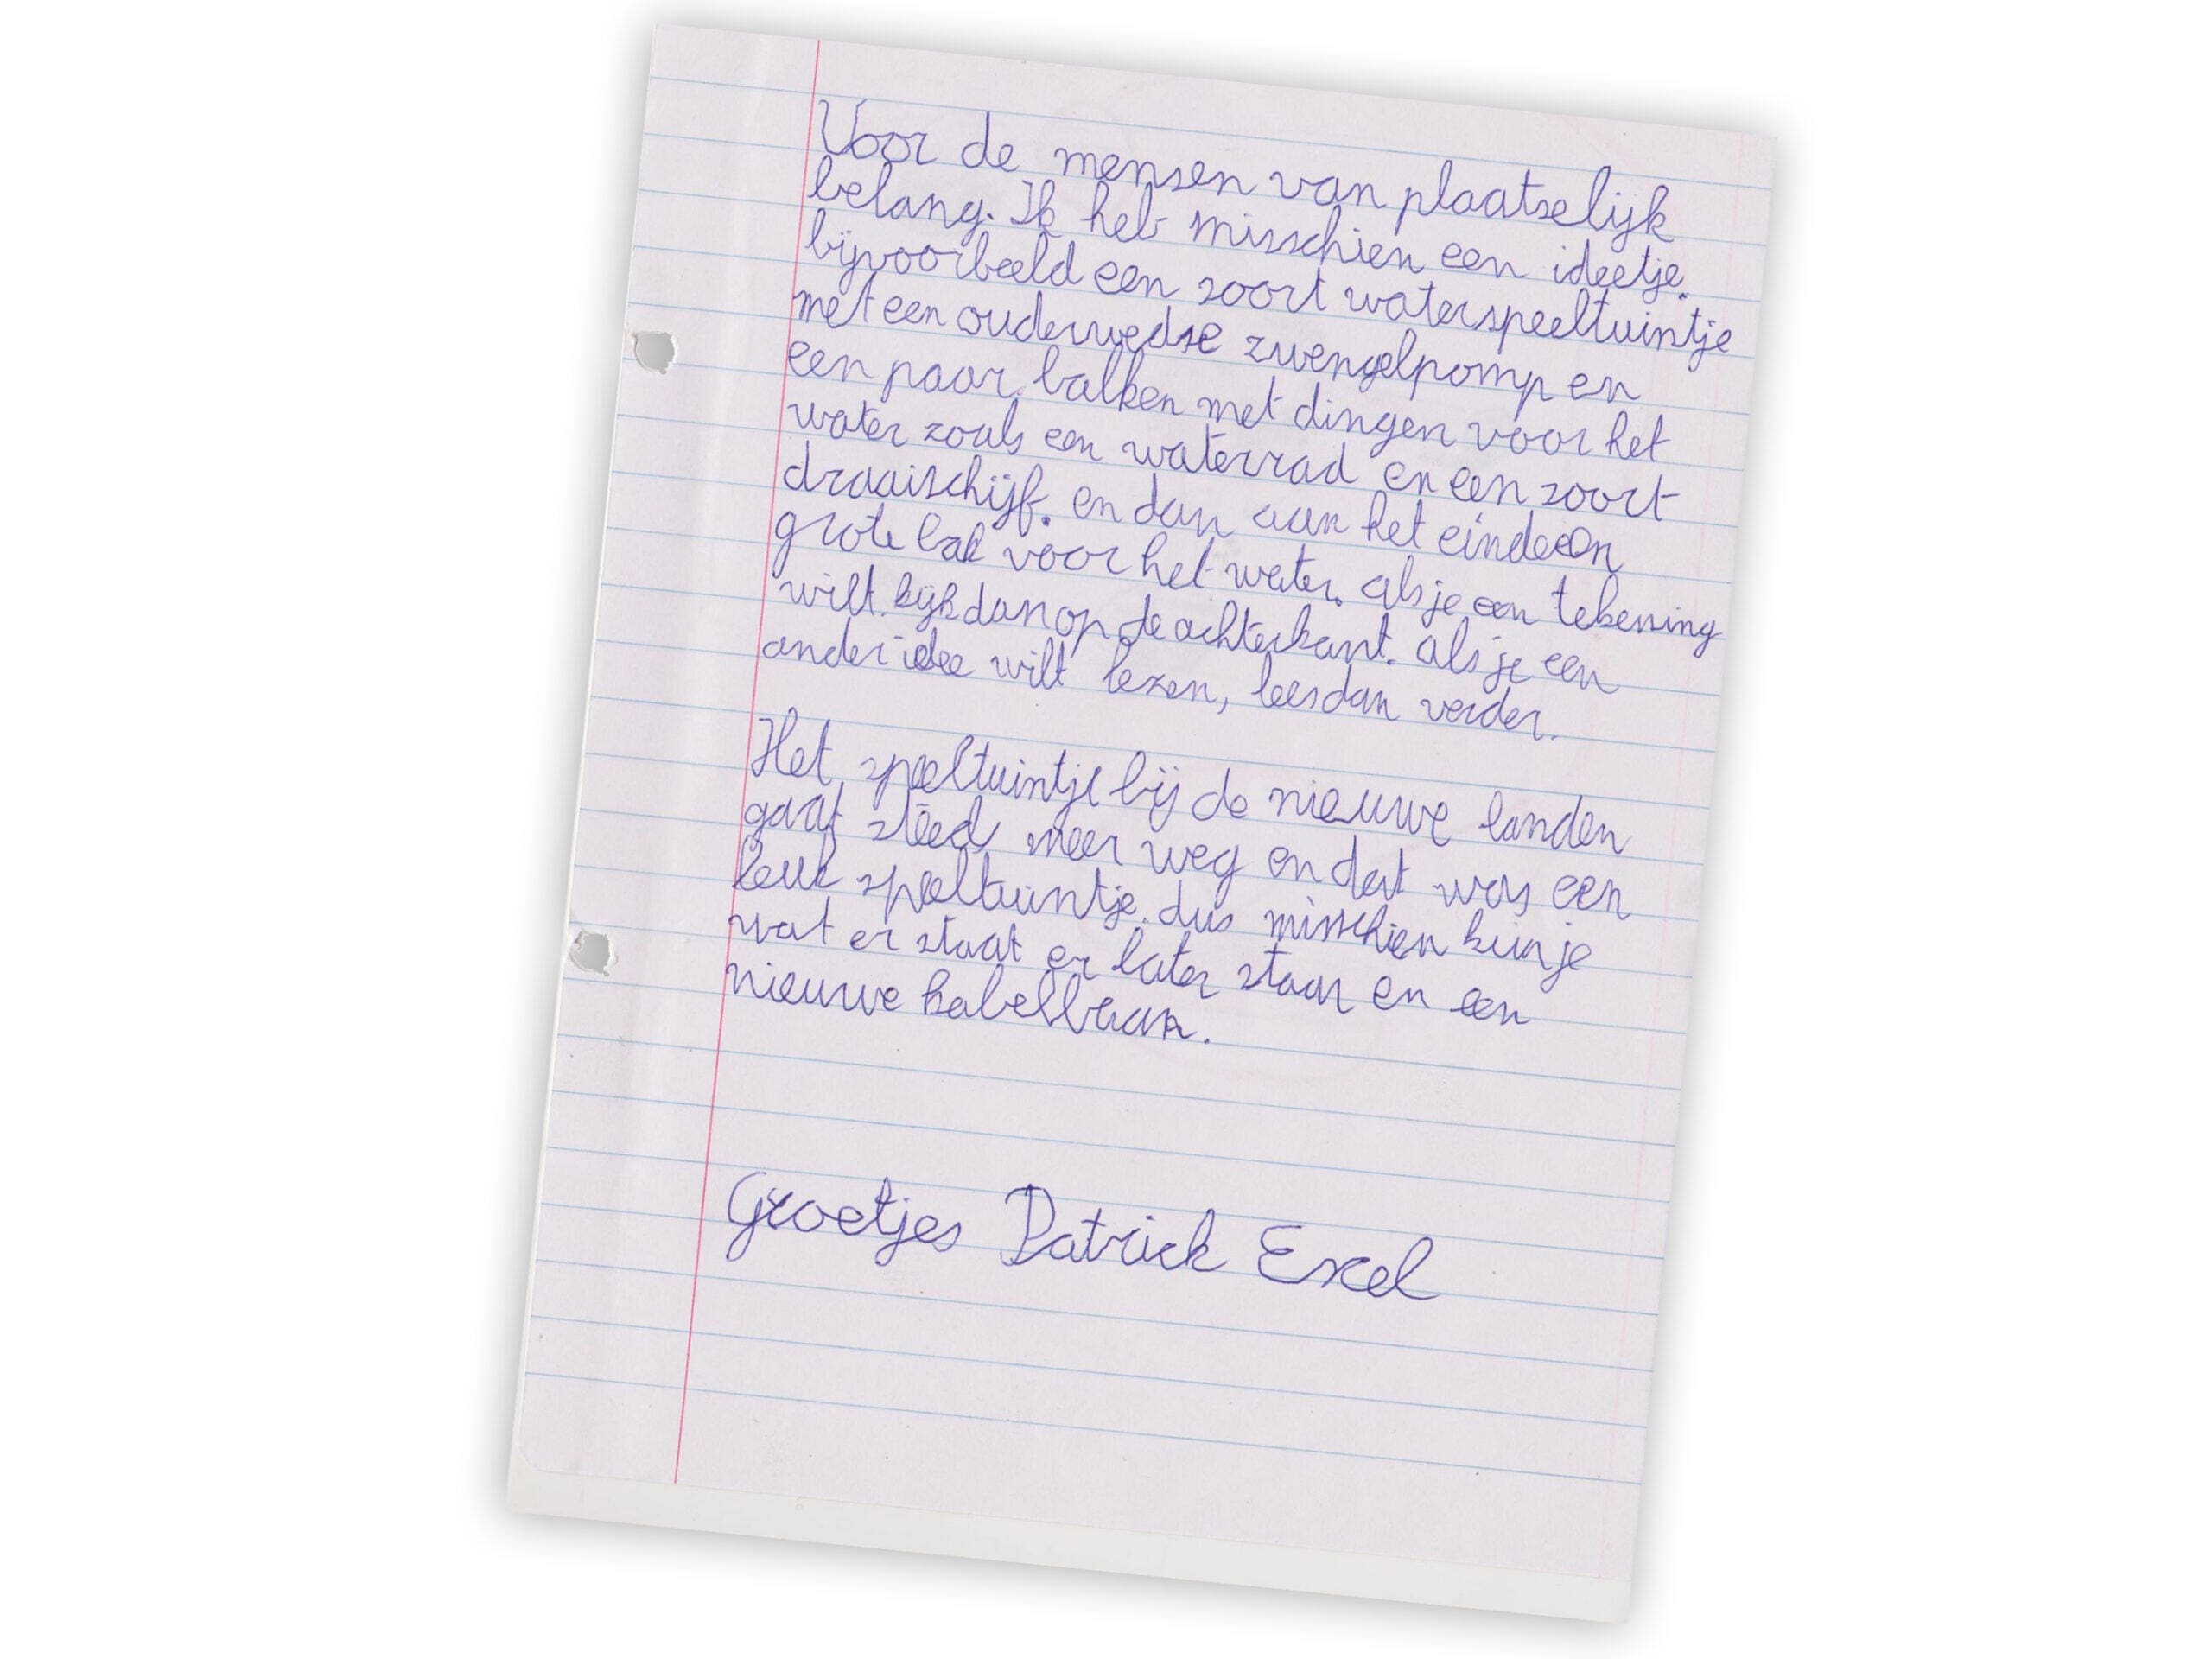 Voor de mensen van plaatselijk
belang. Ik heb misschien een ideetje.
bijvoorbeeld een soort waterspeeltuintje
met een ouderwedse zwengelpomp en
een paar balken met dingen voor het
water zoals een waterrad en een soort
draaischijf. en dan aan het einde een
grote bak voor het water. als je een tekening
wilt kijk dan op de achterkant. als je een
ander idee wilt lezen, lees dan verder.
Het speeltuintje bij de nieuwe landen
gaat steed meer weg en dat was een
leuk speeltuintje. dus misschien kun je
wat er staat er later staan en een
nieuwe kabelbaan.
Groetjes Patrick Exel